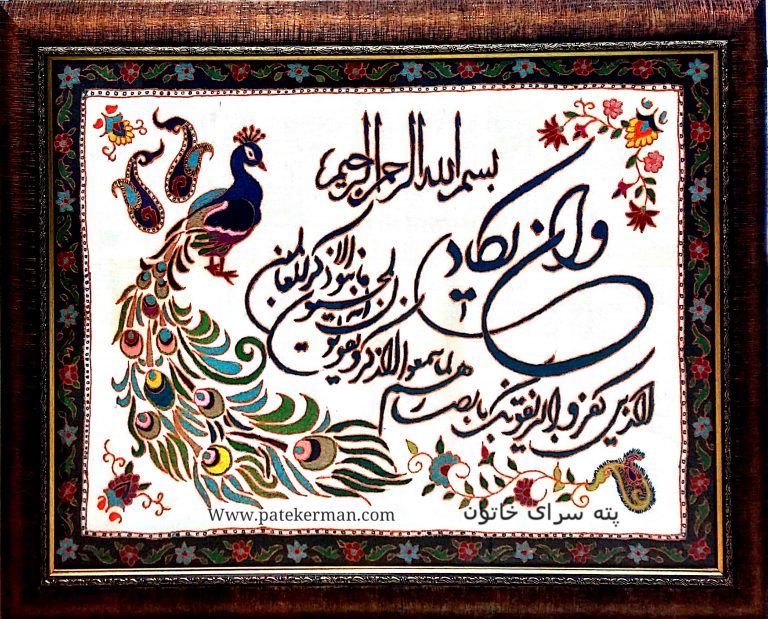 بسم الله الرحمن الرحیم
وان یکاد
الذین کفروا لیزلقونک بابصارهم
لما سمعوا الذکر و یقولون
انه لمجنون
و ما هو الا ذکر للعالمین
Www.patekerman.com
پته سرای خاتون